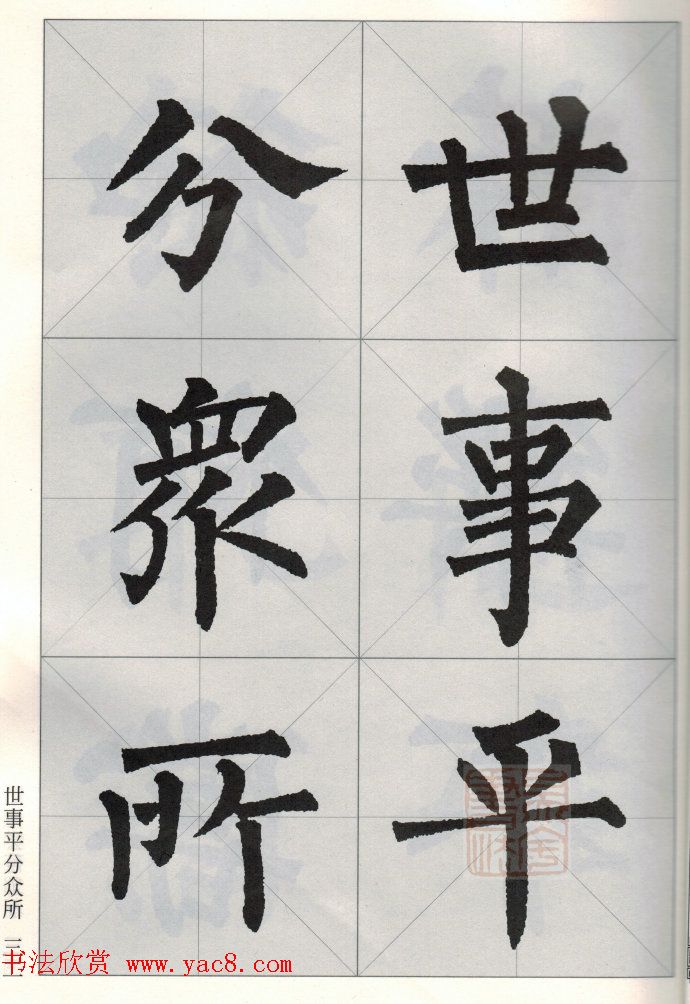 世事平
分衆所
世事平分众所
书法欣赏 www.yac8.com